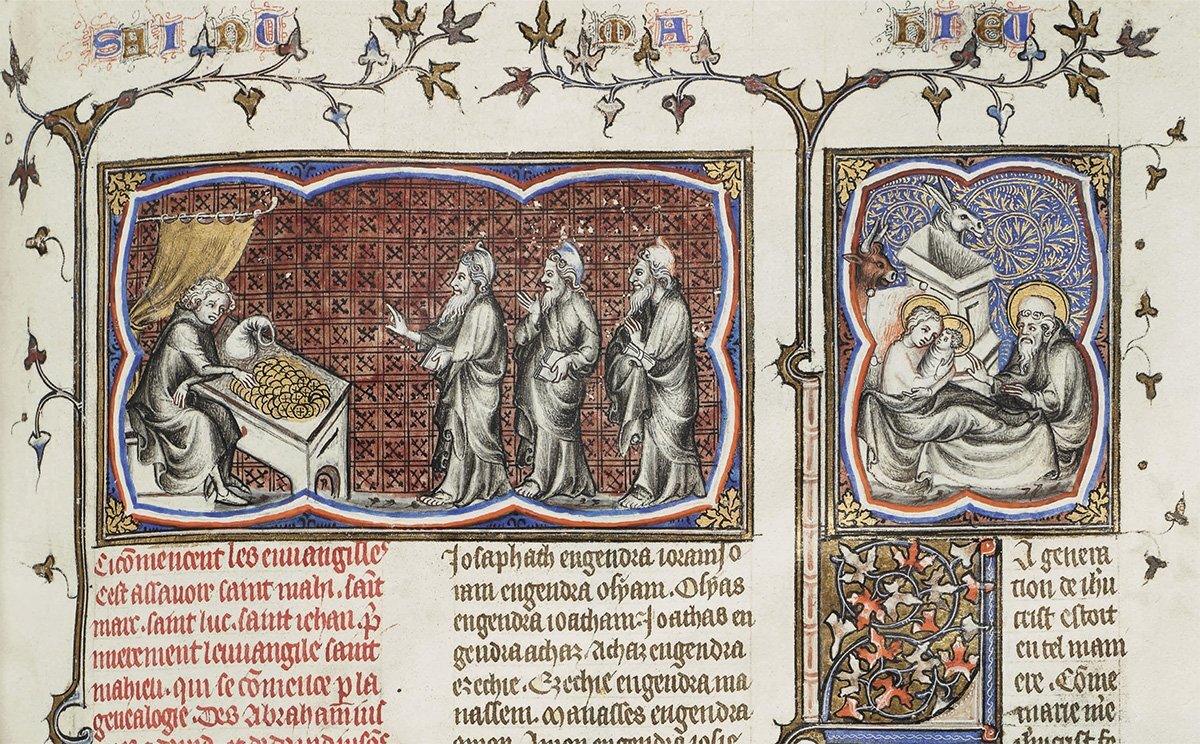 SAINT MA HIEU
Ci cōmencent les euuangilles
Cest assauoir saint mahi. saīt
marc. saint luc. saint iehan. p̄
mierement leuuangile saint
mahieu. qui se cōmence p̱ la
genealogie. Des Abraham ius
Josaphath engendra ioram Jo
ram engendra osyam. Osyas
engendra ioatham: Joathas en
gendra achaz. Achaz engendra
ezechie. Ezechie engendra ma
nassem. Manasses engendra
amon. Amon engendra iosie
La genera
tion de ihū
crist estoit
en tel mani
ere. Cōme
marie me